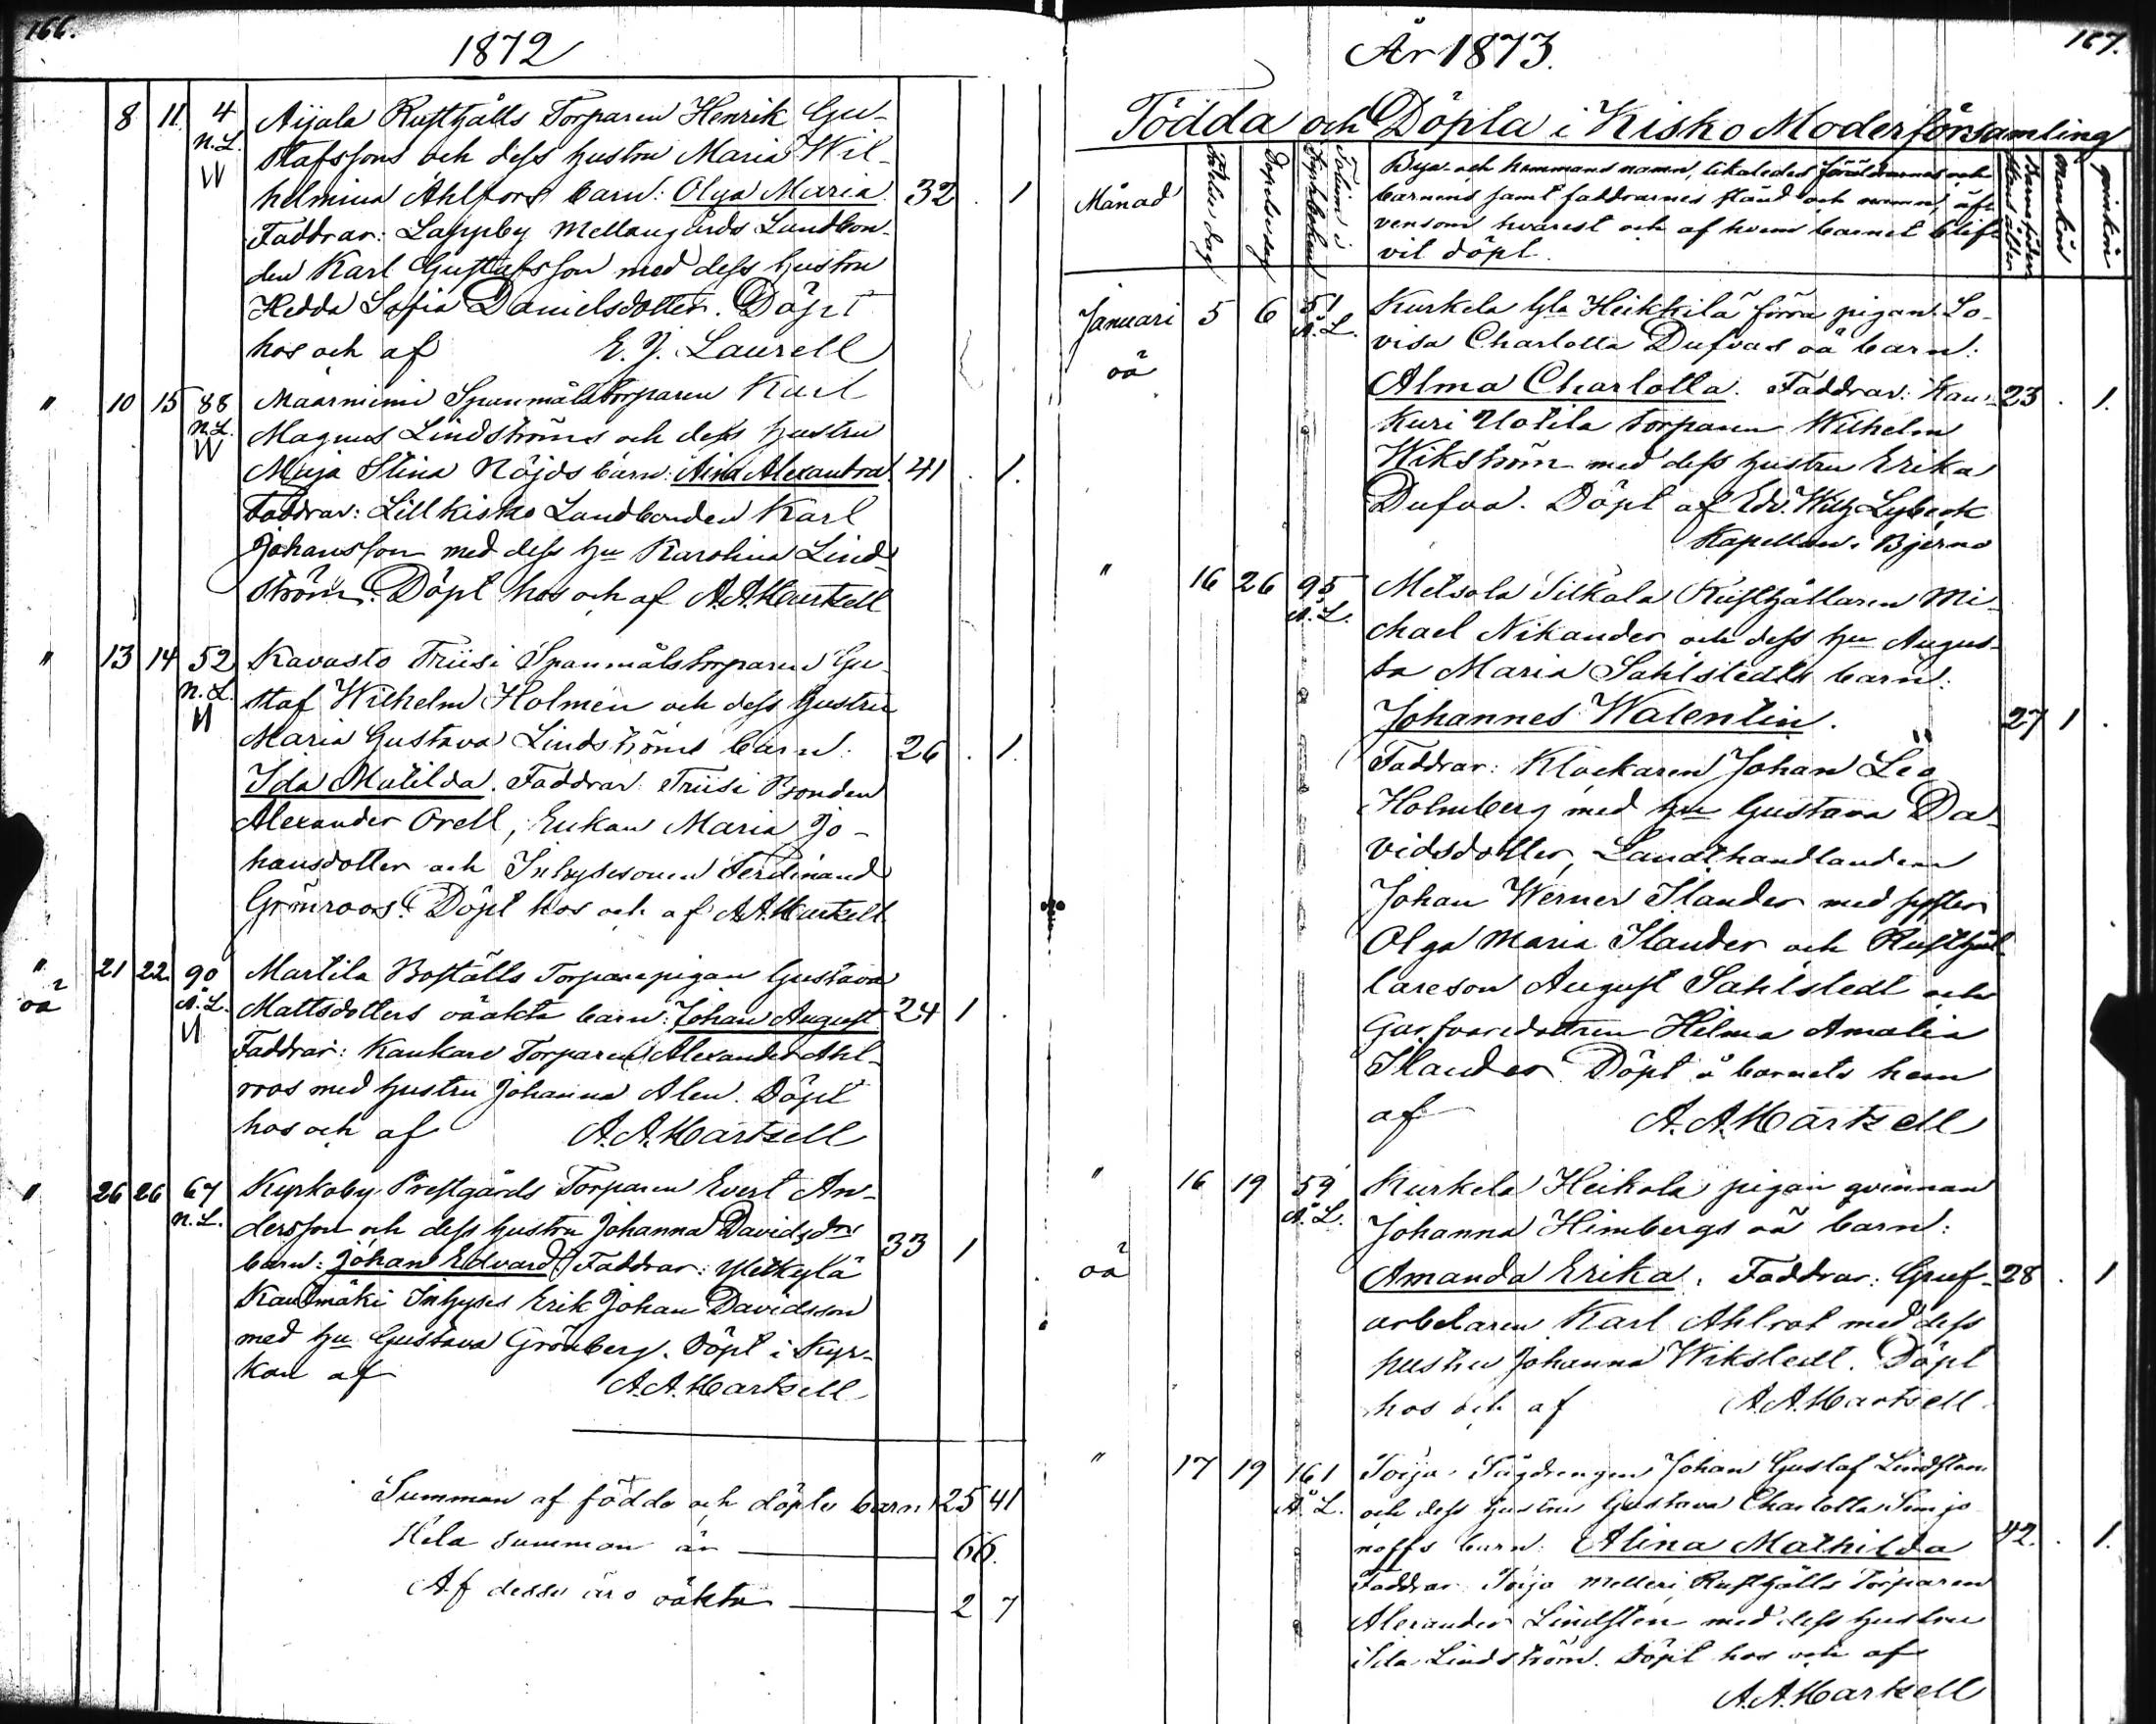 166.
1872
8 11 4 Aijala Rusthålls Torparen Henrik Gu-
n.L. stafssons och dess hustru Maria Wil-
helmina Ahlfors barn: Olga Maria. 32 . 1
Faddrar: Lappby Mellangårds Landbon-
den Karl Gustafsson med dess hustru
Hedda Sofia Danielsdotter. Döpt
hos och af E. J. Laurell
" 10 15 88 Maarniemi Spanmålstorparen Karl
n.L. Magnus Lindströms och dess hustru
Maja Stina Nöjds barn: Aina Alexandra. 41 . 1.
Faddrar: Lillkisko Landbonden Karl
Johansson med dess hu Karolina Lind-
ström. Döpt hos och af A.A.Hartzell
" 13 14 52 Kavasto Friisi Spanmålstorparen Gu-
n.L. staf Wilhelm Holmén och dess hustru
Maria Gustava Lindströms barn: 26 . 1.
Ida Matilda. Faddrar: Friisi Bonden
Alexander Orell, Enkan Maria Jo-
hansdotter och Inhysesonen Ferdinand
Grönroos. Döpt hos och af A.A.Hartzell
" 21 22 90 Martila Boställs Torparepigan Gustava
oä Ä.L. Mattsdotters oäkta barn: Johan August 24 1 .
Faddrar: Kankare Torparen Alexander Ahl-
roos med hustru Johanna Alen. Döpt
hos och af A.A.Hartzell
" 26 26 67 Kyrkoby Prestgårds Torparen Evert An-
n.L. dersson och dess hustru Johanna Davidsdrs
barn: Johan Edvard. Faddrar: Yletkylä 33 1
Kautmäki Inhyses Erik Johan Davidsson
med hu Gustava Grönberg. Döpt i Kyr-
kan af A.A.Hartzell
Summan af födda och döpta barn 25 41
Hela summan är 66.
Af dessa äro oäkta 2 7
167.
År 1873.
Födda och Döpta i Kisko Moderförsamling
Månad Födelse dag Döpelse dag Folium i Kyrkoboken Bya- och hemmans namn, likaledes föräldrarnes och
barnens samt faddrarnes stånd och namn, äf-
vensom hvarest och af hvem barnet blif-
vit döpt. Mankön qvinkön
Januari 5 6 51 Kurkela Gla Heikkilä förra pigan Lo-
Ä.L. visa Charlotta Dufvas oä barn:
oä Alma Charlotta. Faddrar: Kau- 23 . 1.
kuri Uotila torparen Wilhelm
Wikström med dess hustru Erika
Dufva. Döpt af Edv. Wilh. Lybeck
Kapellan i Bjerno
" 16 26 95 Metsola Silkala Rusthållaren Mi-
Ä.L. chael Nikander och dess hu Augus-
ta Maria Sahlstedts barn:
Johannes Walentin. 27 1 .
Faddrar: Klockaren Johan Leo
Holmberg med hu Gustava Da-
vidsdotter, Landthandlanden
Johan Werner Ilander med syster
Olga Maria Ilander och Rusthål-
lareson August Sahlstedt och
Garfvaredottren Hilma Amalia
Ilander. Döpt i barnets hem
af A.A.Hartzell
" 16 19 59 Kurkela Heikola pigan qvinnan
Ä.L. Johanna Himbergs oä barn:
oä Amanda Erika. Faddrar: Gruf- 28 . 1
arbetaren Karl Ahlrot med dess
hustru Johanna Wikstedt. Döpt
hos och af A.A.Hartzell
" 17 19 161 Toija Sågdrengen Johan Gustaf Lindsten
Ä.L. och dess hustru Gustava Charlotta Simjo-
noffs barn: Alina Mathilda 42. . 1.
Faddrar: Toija Melleri Rusthålls Torparen
Alexander Lindstén med dess hustru
Ida Lindström. Döpt hos och af
A.A.Hartzell